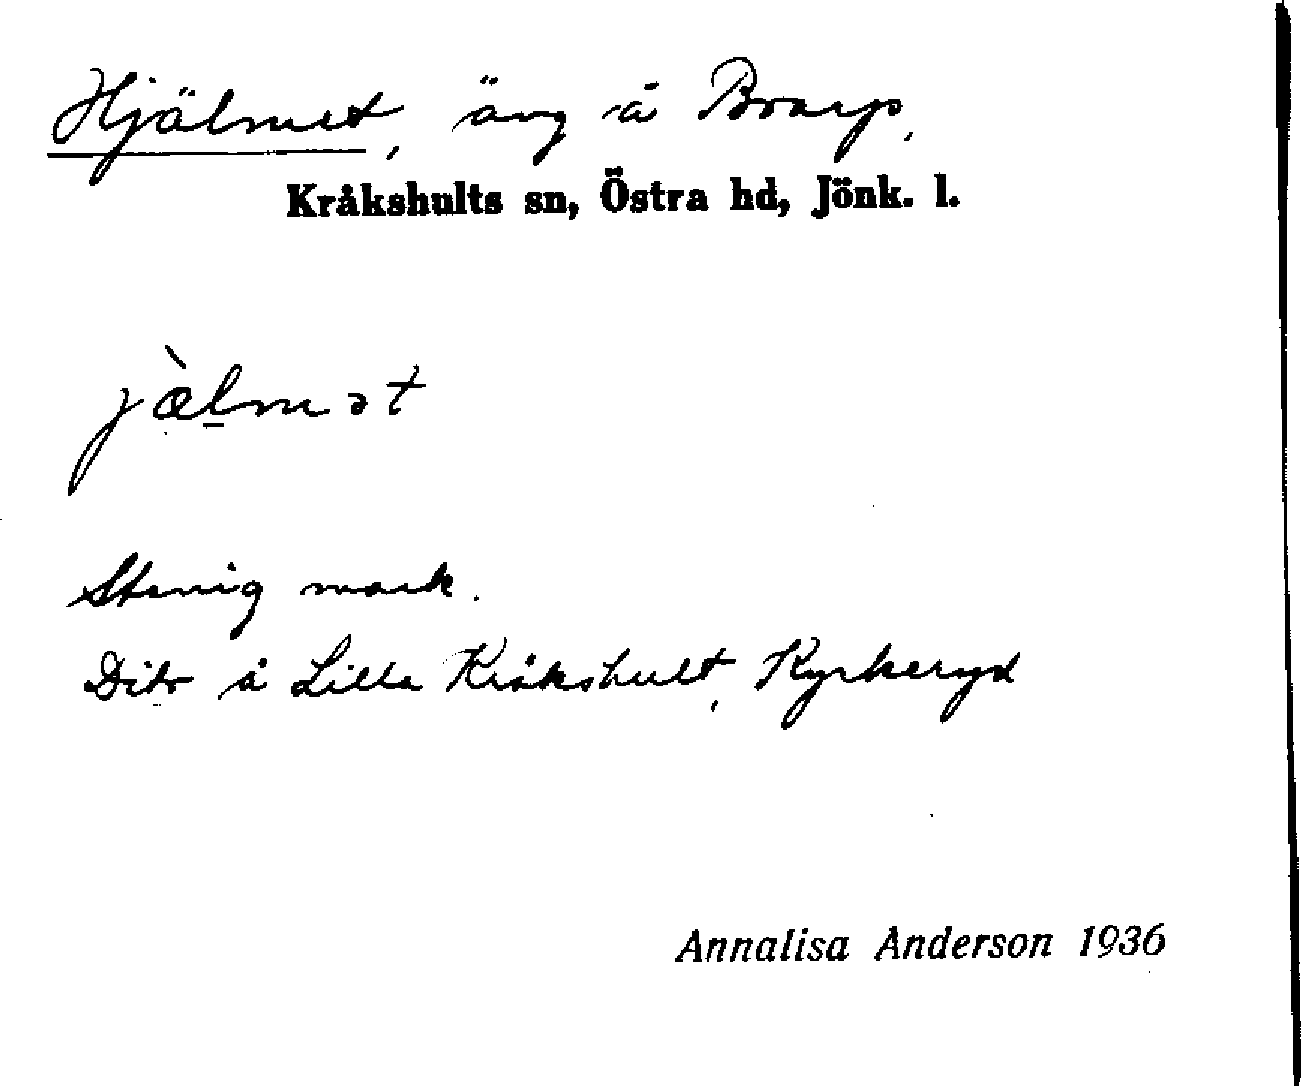 Hjälmet, äng å Broarp,
Kråkshults sn, Östra hd, Jönk. l.
jàlmət
Stenig mark.
Dito å Lilla Kråkshult, Kyrkeryd
Annalisa Anderson 1936